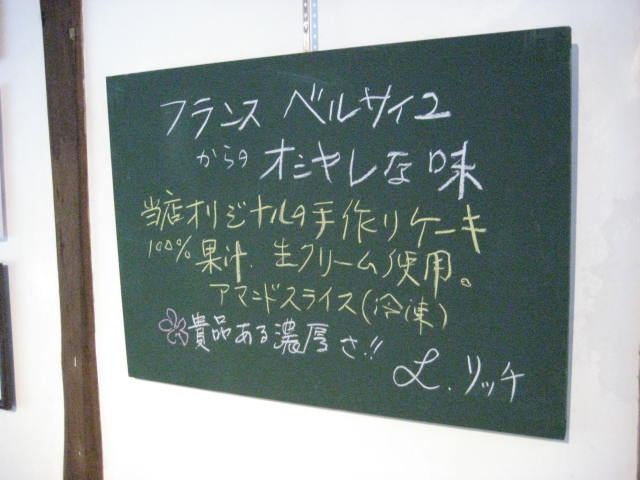 フランス ベルサイユ
からの オシャレな味
当店オリジナルの手作りケーキ
100% 果汁. 生クリーム使用。
アマンドスライス(冷凍)
貴品ある濃厚さ!!
L. リッチ